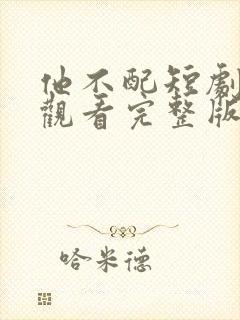 他不配短劇
觀看完整版
哈米德